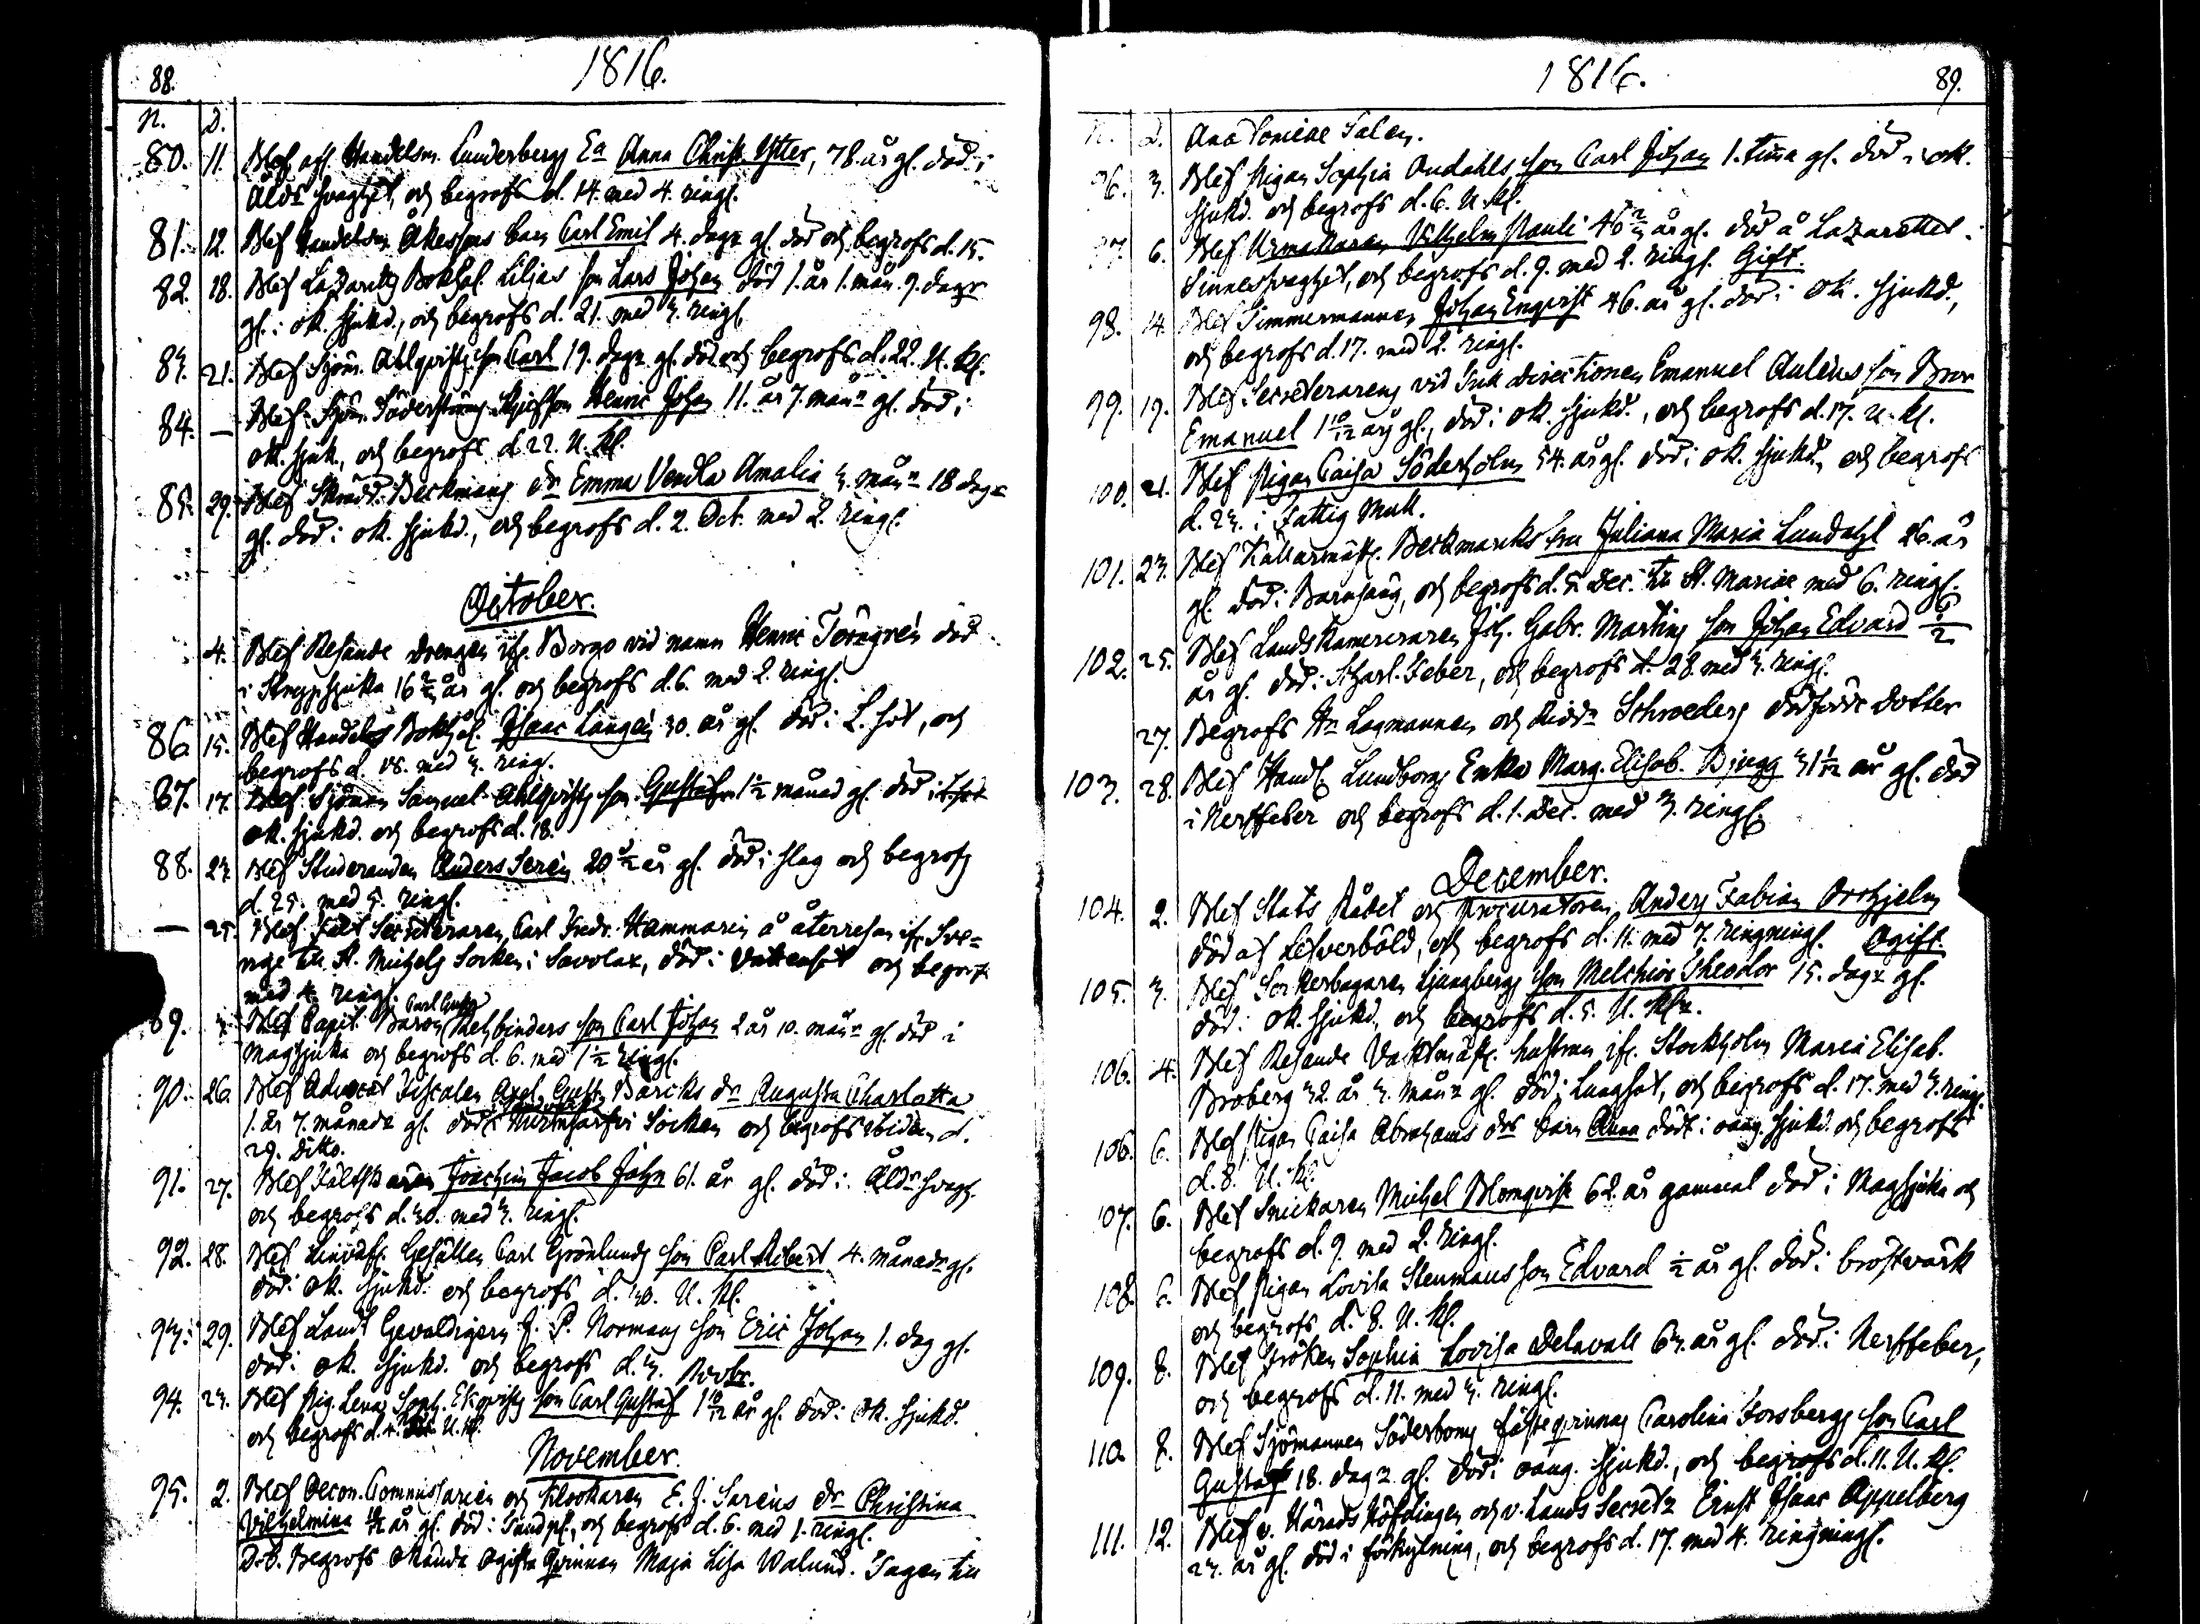 88. 1816.
N. D.
80. 11. Blef afl. Handelsm. Lunderbergs Ea Anna Christ. Ytter, 78. år gl. död i
Åldr svaghet, och begrofs d. 14. med 4. ringl.
81. 12. Blef Handelsm. Åkessons barn Carl Emil 4. dagr gl. död och begrofs d. 15.
82. 18. Blef Lazaretts Bokhål. Liljas son Lars Johan död 1. år 1. mån. 9. dagr
gl. i ok. sjukd., och begrofs d. 21. med 3. ringl.
83. 21. Blef Sjöm. Ahlqvists son Carl 19. dagr gl. död och begrofs d. 22. U. Kl.
84. — Blef Sjöm. Söderströms son Henric Johan 11. år 7. månr gl. död i
ok. sjuk., och begrofs d. 22. U. Kl.
85. 29. Blef Skrädd. Beckmans dr Emma Vendla Amalia 3. månr 18 dagr
gl. död i ok. sjukd., och begrofs d. 2. Oct. med 2. ringl.
October.
4. Blef Resande drengen ifr. Borgo vid namn Henric Törngrén död
i Stryppsjuka 16 år gl. och begrofs d. 6. med 2. ringl.
86. 15. Blef Handels Bokhål. Isaac Langén 30. år gl. död i L. sot, och
begrofs d. 18. med 3. ringl.
87. 17. Blef Sjöman Samuel Ahlqvists son Gustaf 1 1/2 månad gl. död i
ok. sjukd. och begrofs d. 18.
88. 23. Blef Studeranden Anders Serén 20 1/2 år gl. död i slag och begrofs
d. 25. med 5. ringl.
— 25. Blef Fält Secreteraren Carl Fredr. Hammarin å återresan ifr. Sve-
rige till St. Michels Socken i Savolax, död i Vattusot och begrofs
med 4. ringl.
89. Blef Capit. Baron Carl Gust. Rehbinders son Carl Johan 2 år 10. månr gl. död i
Magsjuka och begrofs d. 6. med 1 1/2 ringl.
90. 26. Blef Advocat Fiscalen Axel Gust. dr Augusta Charlotta
1. år 7. månadr gl. död i Socken och begrofs ibidem d.
29. Ditto.
91. 27. Blef Fältskären Joachim Jacob Jahn 61. år gl. död i Åldr svagh.
och begrofs d. 30. med 3. ringl.
92. 28. Blef Gesällen Carl Grönlunds son Carl Robert 4. månadr gl.
död i ok. sjukd. och begrofs d. 30. U. Kl.
93. 29. Blef Lands Gevaldigern J. P. Normans son Eric Johan 1. dag gl.
död i ok. sjukd. och begrofs d. 3. Novbr.
94. 23. Blef Pig. Lena Soph. Ekqvists son Carl Gustaf 1 10/12 år gl. död i ok. sjukd.
och begrofs d. 4. U. Kl.
November.
95. 2. Blef Oecon. Commissarien och Klockaren E. J. Sarens dr Christina
Vilhelmina år gl. död i och begrofs d. 6. med 1. ringl.
D. 6. Begrofs okända ogifta Qvinnan Maja Lisa Valund. Tagen till
1816. 89.
N. D. Anatomiae Salen.
96. 3. Blef Pigan Sophia Audahls son Carl Johan 1. timma gl. död i ok.
sjukd. och begrofs d. 6. U. Kl.
97. 6. Blef Urmakaren Vilhelm Pauli 46 år gl. död å Lazarettet i
Sinnessvaghet, och begrofs d. 9. med 2. ringl. Gift.
98. 14. Blef Timmermannen Johan Enqvist 46. år gl. död i ok. sjukd.,
och begrofs d. 17. med 2. ringl.
99. 19. Blef Secreterarens vid Directionen Emanuel Auléns son Bror
Emanuel 1 10/12 års gl., död i ok. sjukd., och begrofs d. 17. U. Kl.
100. 21. Blef Pigan Caisa Söderholm 54. år gl. död i ok. sjukd., och begrofs
d. 23. i Fattig Mull.
101. 23. Blef Källarmäst. Beckmarcks fru Juliana Maria Lundahl 26. år
gl. död i Barnsäng, och begrofs d. 5. Dec. till St. Mariae med 6. ringl.
102. 25. Blef Lands Kamereraren Joh. Gabr. Martins son Johan Edvard
år gl. död i Skarl. Feber, och begrofs d. 28. med 3. ringl.
27. Begrofs Hr Lagmannen och Riddr Schroeders dödfödde dotter
103. 28. Blef Handl. Lundborgs Enka Marg. Elisab. Bjugg 31 1/12 år gl. död
i Nerffeber och begrofs d. 1. Dec. med 3. ringl.
December.
104. 2. Blef Stats Rådet och Procuratoren Anders Fabian Orrhjelm
död af Lefverböld, och begrofs d. 11. med 7. ringningl. Ogift.
105. 3. Blef Sockerbagaren Ljungbergs son Melchior Theodor 15. dagr gl.
död i ok. sjukd., och begrofs d. 5. U. Kl.
106. 4. Blef Resande Vaktmäst. hustrun ifr. Stockholm Maria Elisab.
Broberg 32 år 3. månr gl. död i Lungsot, och begrofs d. 17. med 3. ringl.
106. 6. Blef Pigan Caisa Abrahams drs barn Anna dödt i oang. sjukd. och begrofs
d. 8. U. Kl.
107. 6. Blef Snickaren Michel Blomqvist 62. år gammal död i Magsjuka och
begrofs d. 9. med 2. ringl.
108. 6. Blef Pigan Lovisa Stenmans son Edvard 1/2 år gl. död i bröstvärk
och begrofs d. 8. U. Kl.
109. 8. Blef Fröken Sophia Lovisa Delavall 63. år gl. död i Nerffeber,
och begrofs d. 11. med 3. ringl.
110. 8. Blef Sjömannen Söderboms fästeqvinnas Carolina Forsbergs son Carl
Gustaf 18. dagr gl. död i oang. sjukd., och begrofs d. 11. U. Kl.
111. 12. Blef v. Härads Höfdingen och v. Lands Secretr Ernst Isaac Appelberg
23. år gl. död i förkylning, och begrofs d. 17. med 4. ringningl.